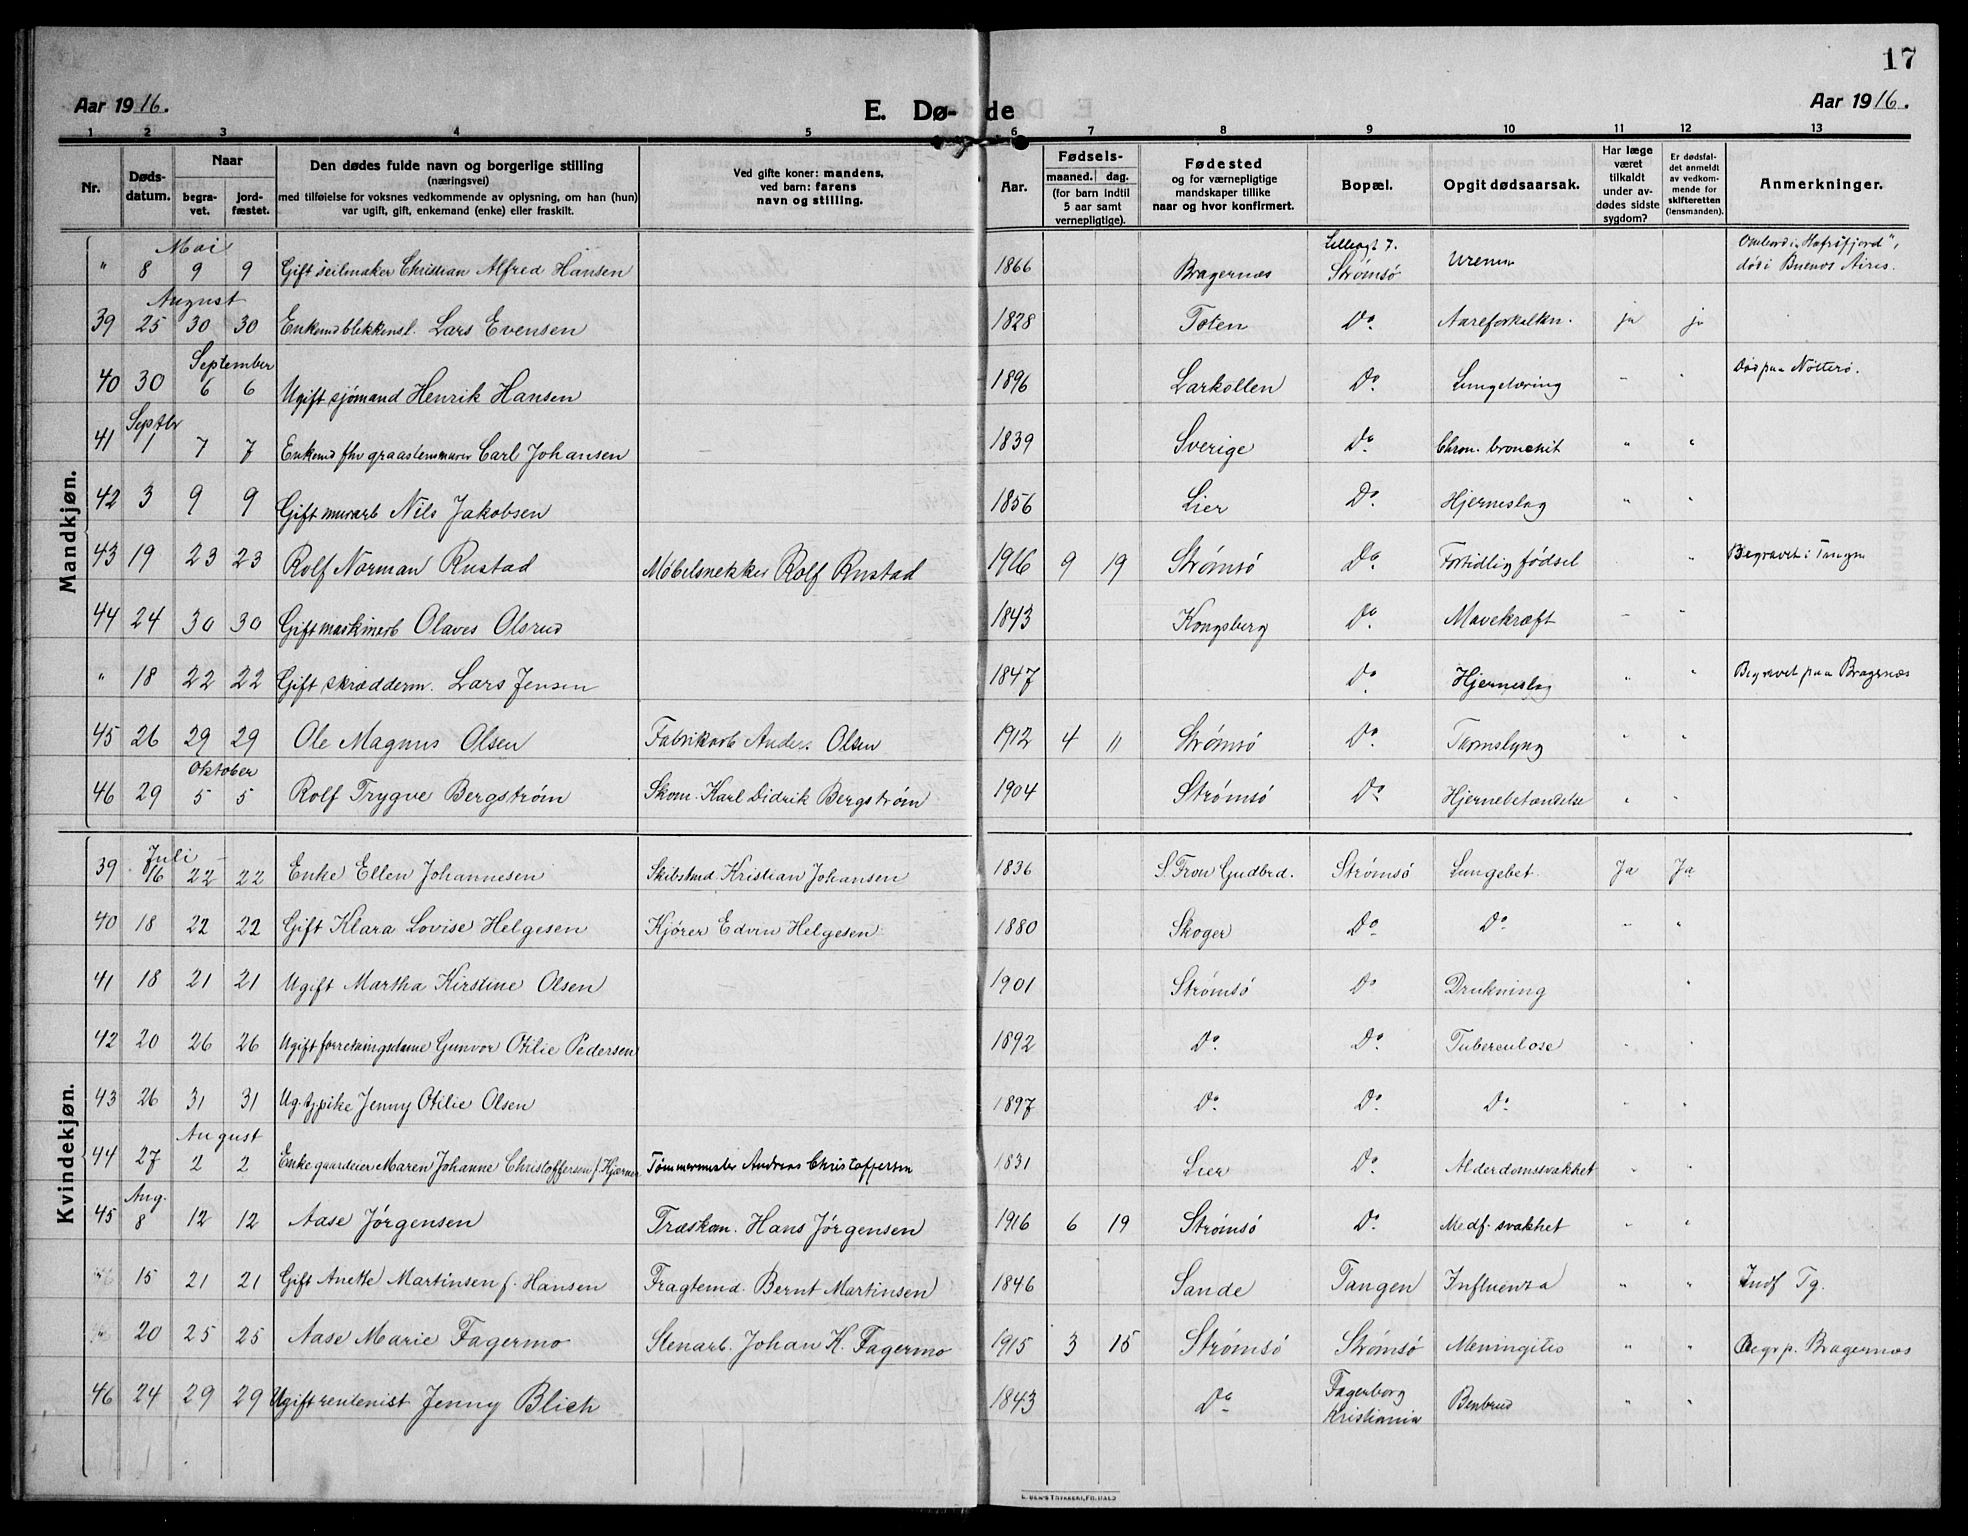 17
Aar 1916. E. Dø- de Aar 1916.
1 2 3 4 5 6 7 8 9 10 11 12 13
Nr. Døds-datum. Naar begra-vet. jord-fæstet. Den dødes fulde navn og borgerlige stilling (næringsvei) med tilføielse for voksnes vedkommende av oplysning, om han (hun) var ugift, gift, enkemand (enke) eller fraskilt. Ved gifte koner: mandens, ved barn: farens navn og stilling. Aar. Fødsels- maaned. dag. (for barn indtil 5 aar samt vernepligtige). Fødested og for værnepligtige mandskaper tillike naar og hvor konfirmert. Bopæl. Opgit dødsaarsak. Har læge været tilkaldt under av-dødes sidste sygdom? Er dødsfal-det anmeldt av vedkom-mende for skifteretten (lensmanden). Anmerkninger.
Mandkjøn.
Mai
" 8 9 9 Gift seilmaker Christian Alfred Hansen 1866 Bragernes Strømsø Uremi Ombord i "Hafrsfjord", død i Buenos Aires.
August
39 25 30 30 Enkemd blikkensl. Lars Evensen 1828 Toten Do Aareforkalkn. ja ja
September
40 30 6 6 Ugift sjømand Henrik Hansen 1896 Larkollen Do Lungetæring " " Død paa Nötterö.
Septbr
41 1 7 7 Enkemd fhv graastensmurer Carl Johansen 1839 Sverige Do Chron. bronchit " "
42 3 9 9 Gift murarb Nils Jakobsen 1856 Lier Do Hjerneslag " "
43 19 23 23 Rolf Norman Rustad Møbelsnekker Rolf Rustad 1916 9 19 Strømsø Do Fortidlig fødsel " Begravet i Tangen
44 24 30 30 Gift maskinarb Olaves Olsrud 1843 Kongsberg Do Mavekræft " "
" 18 22 22 Gift skrædderm. Lars Jensen 1847 Do Hjerneslag " " Begravet paa Bragernæs
45 26 29 29 Ole Magnus Olsen Fabrikarb Anders Olsen 1912 4 11 Strømsø Do Tarmslyng " "
Oktober
46 29 5 5 Rolf Trygve Bergstrøm Skom. Karl Didrik Bergstrøm 1904 Strømsø Do Hjernebetændelse " "
Kvindekjøn.
Juli
39 16 22 22 Enke Ellen Johannesen Skibstmd. Kristian Johansen 1836 S. Fron Gudbrd. Strømsø Lungebet. Ja Ja
40 18 22 22 Gift Klara Lovise Helgesen Kjører Edvin Helgesen 1880 Skoger Do Do " "
41 18 21 21 Ugift Martha Kirstine Olsen 1901 Strømsø Do Drukning "
42 20 26 26 Ugift forretningsdame Gunvor Otilie Pedersen 1892 Do Do Tuberculose " "
43 26 31 31 Ug. tjpike Jenny Otilie Olsen 1897 Do Do Do " "
August
44 27 2 2 Enke gaardeier Maren Johanne Christoffersen f. Hjerner Tømmermester Andreas Christoffersen 1831 Lier Do Alderdomssvakhet " "
Aug.
45 8 12 12 Aase Jørgensen Træskom. Hans Jørgensen 1916 6 19 Strømsø Do Medf. svakhet " "
" 15 21 21 Gift Anette Martinsen f. Hansen Fragtemd. Bernt Martinsen 1846 Sande Tangen Influenza " " Indf Tg.
" 20 25 25 Aase Marie Fagermo Stenarb. Johan K. Fagermo 1915 3 15 Strømsø Strømsø Meningitis " " Begr p. Bragernæs
46 24 29 29 Ugift rentenist Jenny Blich 1843 Do Fagerborg Kristiania Benbrud " "